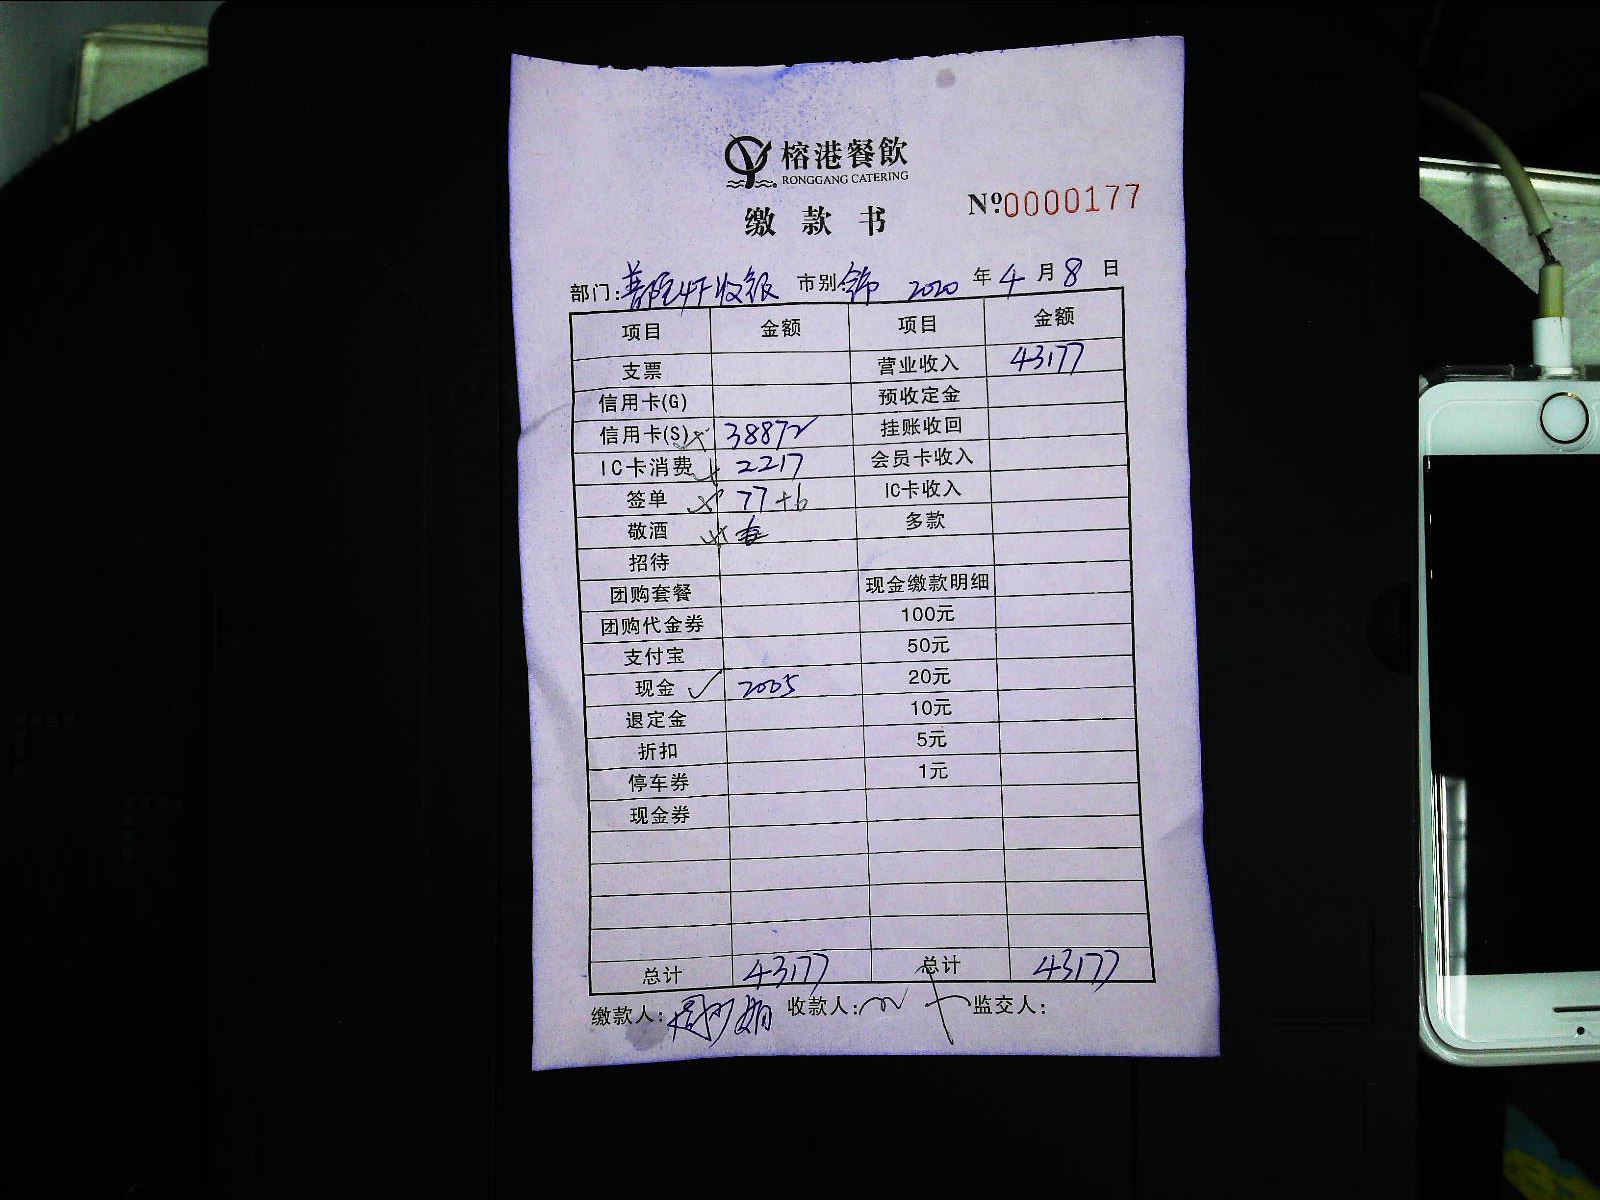 榕港餐飲
RONGGANG CATERING
缴款书 Nº:0000177
部门: 收银 市别 2020 年 4 月 8 日
项目 金额 项目 金额
支票 营业收入 43177
信用卡(G) 预收定金
信用卡(S) 38872 挂账收回
IC卡消费 2217 会员卡收入
签单 77+6 IC卡收入
敬酒 多款
招待
团购套餐 现金缴款明细
团购代金券 100元
支付宝 50元
现金 ✓ 2005 20元
退定金 10元
折扣 5元
停车券 1元
现金券
总计 43177 总计 43177
缴款人: 收款人: 监交人: